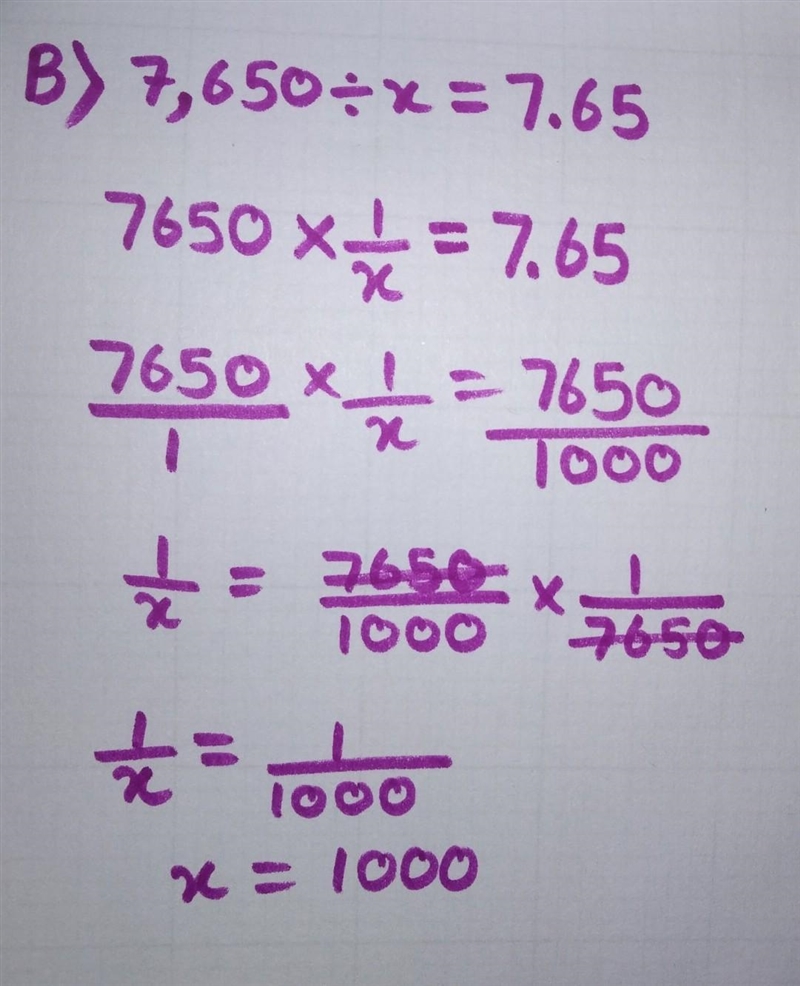 B) 7,650 ÷ x = 7.65
7650 × 1/x = 7.65
7650/1 × 1/x = 7650/1000
1/x = 7650/1000 × 1/7650
1/x = 1/1000
x = 1000